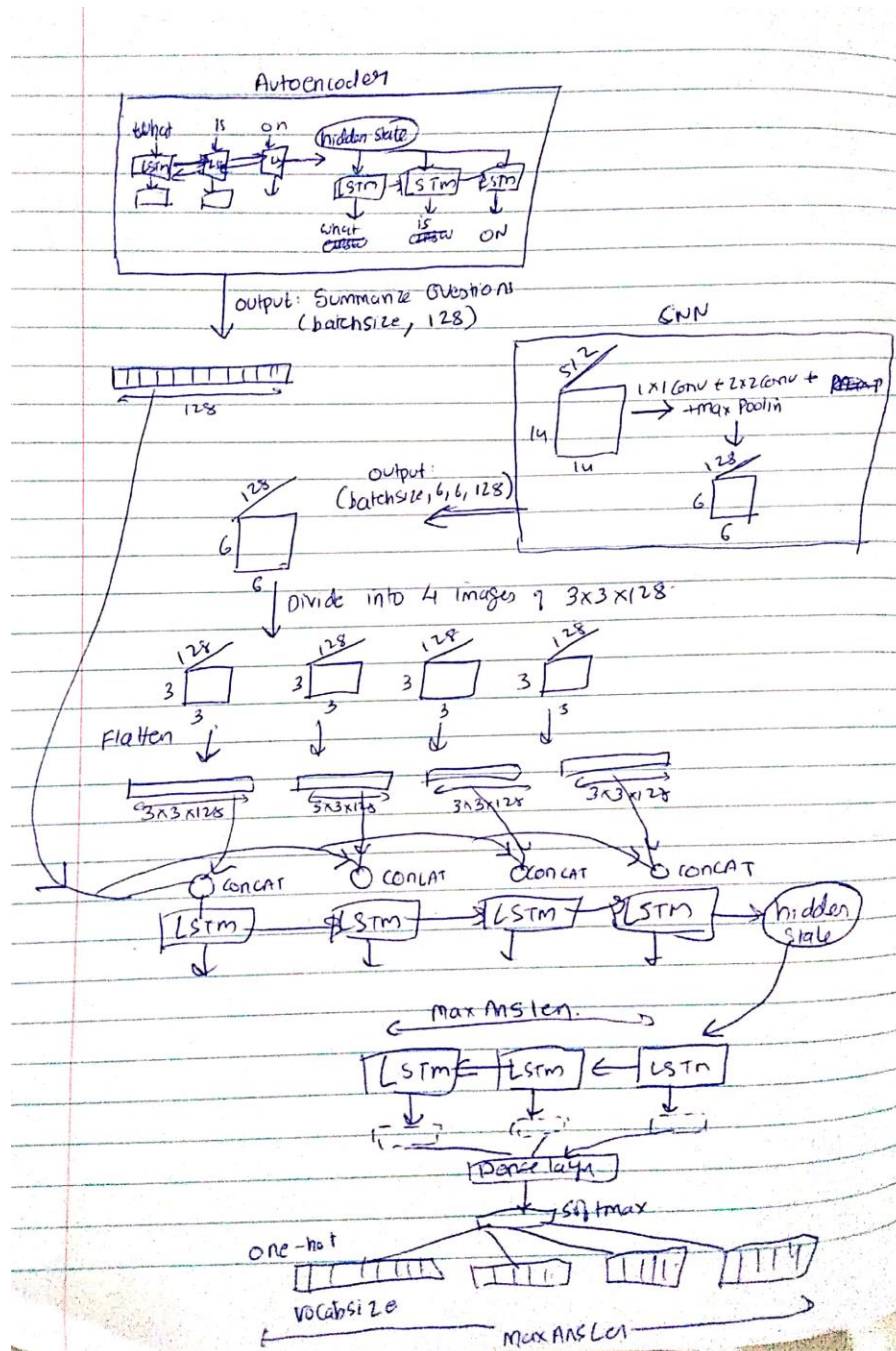 Autoencoder
What is on hidden state
LSTM LS
LSTM LSTM LSTM
what is ON
output: Summarize Questions
(batchsize, 128)
128
CNN
512
1x1 Conv + 2x2 Conv +
+max Poolin
14
14
128
6
6
output:
(batchsize, 6, 6, 128)
128
6
6
Divide into 4 images of 3x3x128
128 128 128 128
3 3 3 3
3 3 3 3
Flatten
3x3x128 3x3x128 3x3x128 3x3x128
CONCAT CONCAT CONCAT CONCAT
LSTM LSTM LSTM LSTM hidden
state
max Ans len.
LSTM LSTM LSTM
Dense layer
softmax
one-hot
vocabsize
max Ans Len